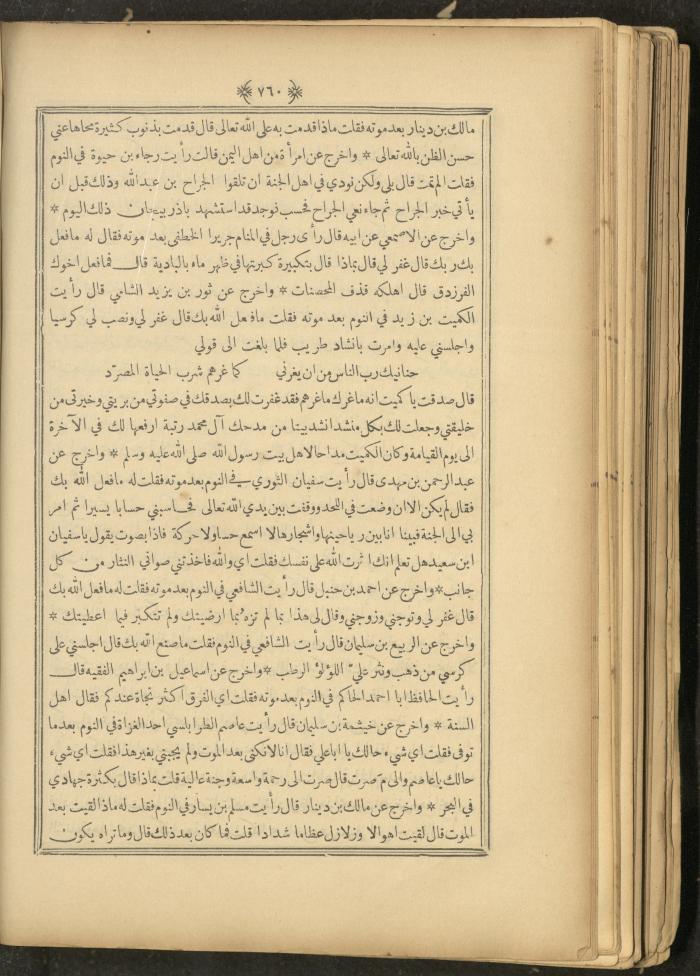 ﴿ ٧٦٠ ﴾
مالك بن دينار بعد موته فقلت ماذا قدمت به على الله تعالى قال قدمت بذنوب كثيرة محاها عني
حسن الظن بالله تعالى * واخرج عن امرأة من اهل اليمن قالت رأيت رجاء بن حيوة في النوم
فقلت الم تمت قال بلى ولكن نودي في اهل الجنة ان تلقوا الجراح بن عبد الله وذلك قبل ان
يأتي خبر الجراح ثم جاء نعي الجراح فحسب فوجد قد استشهد باذربيجان ذلك اليوم *
واخرج عن الاصمعي عن ابيه قال رأى رجل في المنام جريرا الخطفى بعد موته فقال له ما فعل
بك ربك قال غفر لي قال بماذا قال بتكبيرة كبرتها في ظهر ماء بالبادية قال فما فعل اخوك
الفرزدق قال اهلكه قذف المحصنات * واخرج عن ثور بن يزيد الشامي قال رأيت
الكميت بن زيد في النوم بعد موته فقلت ما فعل الله بك قال غفر لي ونصب لي كرسيا
واجلسني عليه وامرت بانشاد طريب فلما بلغت الى قولي
حنانيك رب الناس من ان يغرني كما غرهم شرب الحياة المصرّد
قال صدقت يا كميت انه ما غرك ما غرهم فقد غفرت لك بصدقك في صفوتي من بريتي وخيرتي من
خليقتي وجعلت لك بكل منشد انشد بيتا من مدحك آل محمد رتبة ارفعها لك في الآخرة
الى يوم القيامة وكان الكميت مداحا لاهل بيت رسول الله صلى الله عليه وسلم * واخرج عن
عبد الرحمن بن مهدى قال رأيت سفيان الثوري في النوم بعد موته فقلت له ما فعل الله بك
فقال لم يكن الا ان وضعت في اللحد ووقفت بين يدي الله تعالى فحاسبني حسابا يسيرا ثم امر
بي الى الجنة فبينا انا بين رياحينها واشجارها لا اسمع حسا ولا حركة فاذا بصوت يقول يا سفيان
ابن سعيد هل تعلم انك اثرت الله على نفسك فقلت اي والله فاخذتني صواني النثار من كل
جانب * واخرج عن احمد بن حنبل قال رأيت الشافعي في النوم بعد موته فقلت له ما فعل الله بك
قال غفر لي وتوجني وزوجني وقال لي هذا بما لم تزه بما ارضيتك ولم تتكبر فيما اعطيتك *
واخرج عن الربيع بن سليمان قال رأيت الشافعي في النوم فقلت ما صنع الله بك قال اجلسني على
كرسي من ذهب ونثر عليّ اللؤلؤ الرطب * واخرج عن اسماعيل بن ابراهيم الفقيه قال
رأيت الحافظ ابا احمد الحاكم في النوم بعد موته فقلت اي الفرق اكثر نجاة عندكم فقال اهل
السنة * واخرج عن خيثمة بن سليمان قال رأيت عاصم الطرابلسي احد الغزاة في النوم بعد ما
توفى فقلت اي شيء حالك يا ابا علي فقال انا لا نكنى بعد الموت ولم يجبني بغير هذا فقلت اي شيء
حالك يا عاصم والى م صرت قال صرت الى رحمة واسعة وجنة عالية قلت بماذا قال بكثرة جهادي
في البحر * واخرج عن مالك بن دينار قال رأيت مسلم بن يسار في النوم فقلت له ماذا لقيت بعد
الموت قال لقيت اهوالا وزلازل عظاما شدادا قلت فما كان بعد ذلك قال وما تراه يكون